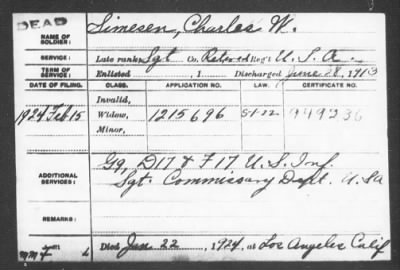 DEAD
NAME OF SOLDIER: Simesen, Charles W.
SERVICE: Late rank, Sgt Co. Retired Reg't U. S. A.
TERM OF SERVICE: Enlisted , 1 Discharged June 28, 1913
DATE OF FILING. CLASS. APPLICATION NO. LAW. CERTIFICATE NO.
Invalid,
1924 Feb 15 Widow, 1215696 5-1-22 949236
Minor,
ADDITIONAL SERVICES:
G9, D17 & F17 U.S. Inf.
Sgt. Commissary Dept. U.S.A
REMARKS:
Died Jan 22, 1924, at Los Angeles Calif